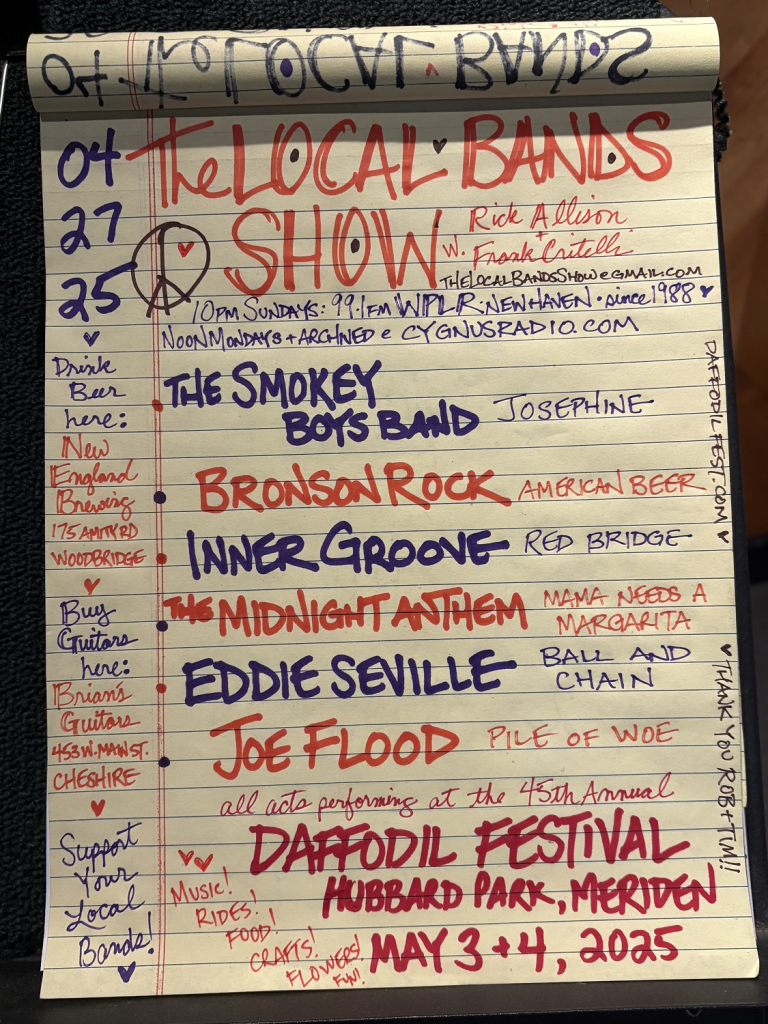 The LOCAL BANDS
04
27
25
SHOW
w. Rick Allison
+
Frank Critelli
THELOCALBANDSSHOW@GMAIL.COM
10PM SUNDAYS: 99.1FM WPLR: NEW HAVEN • since 1988 ♥
NOON MONDAYS + ARCHIVED @ CYGNUSRADIO.COM
Drink
Beer
here:
New
England
Brewing
175 AMITY RD
WOODBRIDGE
Buy
Guitars
here:
Brian's
Guitars
453 W. MAIN ST.
CHESHIRE
Support
Your
Local
Bands!
• THE SMOKEY
BOYS BAND JOSEPHINE
• BRONSON ROCK AMERICAN BEER
• INNER GROOVE RED BRIDGE
• THE MIDNIGHT ANTHEM MAMA NEEDS A
MARGARITA
• EDDIE SEVILLE BALL AND
CHAIN
• JOE FLOOD PILE OF WOE
all acts performing at the 45th Annual
DAFFODIL FESTIVAL
HUBBARD PARK, MERIDEN
MAY 3 + 4, 2025
MUSIC!
RIDES!
FOOD!
CRAFTS!
FLOWERS!
FUN!
DAFFODILFEST.COM ♥
♥ THANK YOU ROB + TIM!!